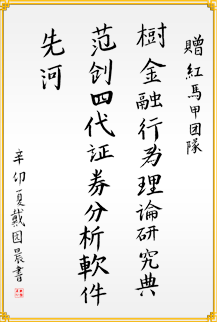 贈紅馬甲团隊
樹金融行为理論研究典
范創四代证券分析軟件
先河
辛卯夏戴园晨書